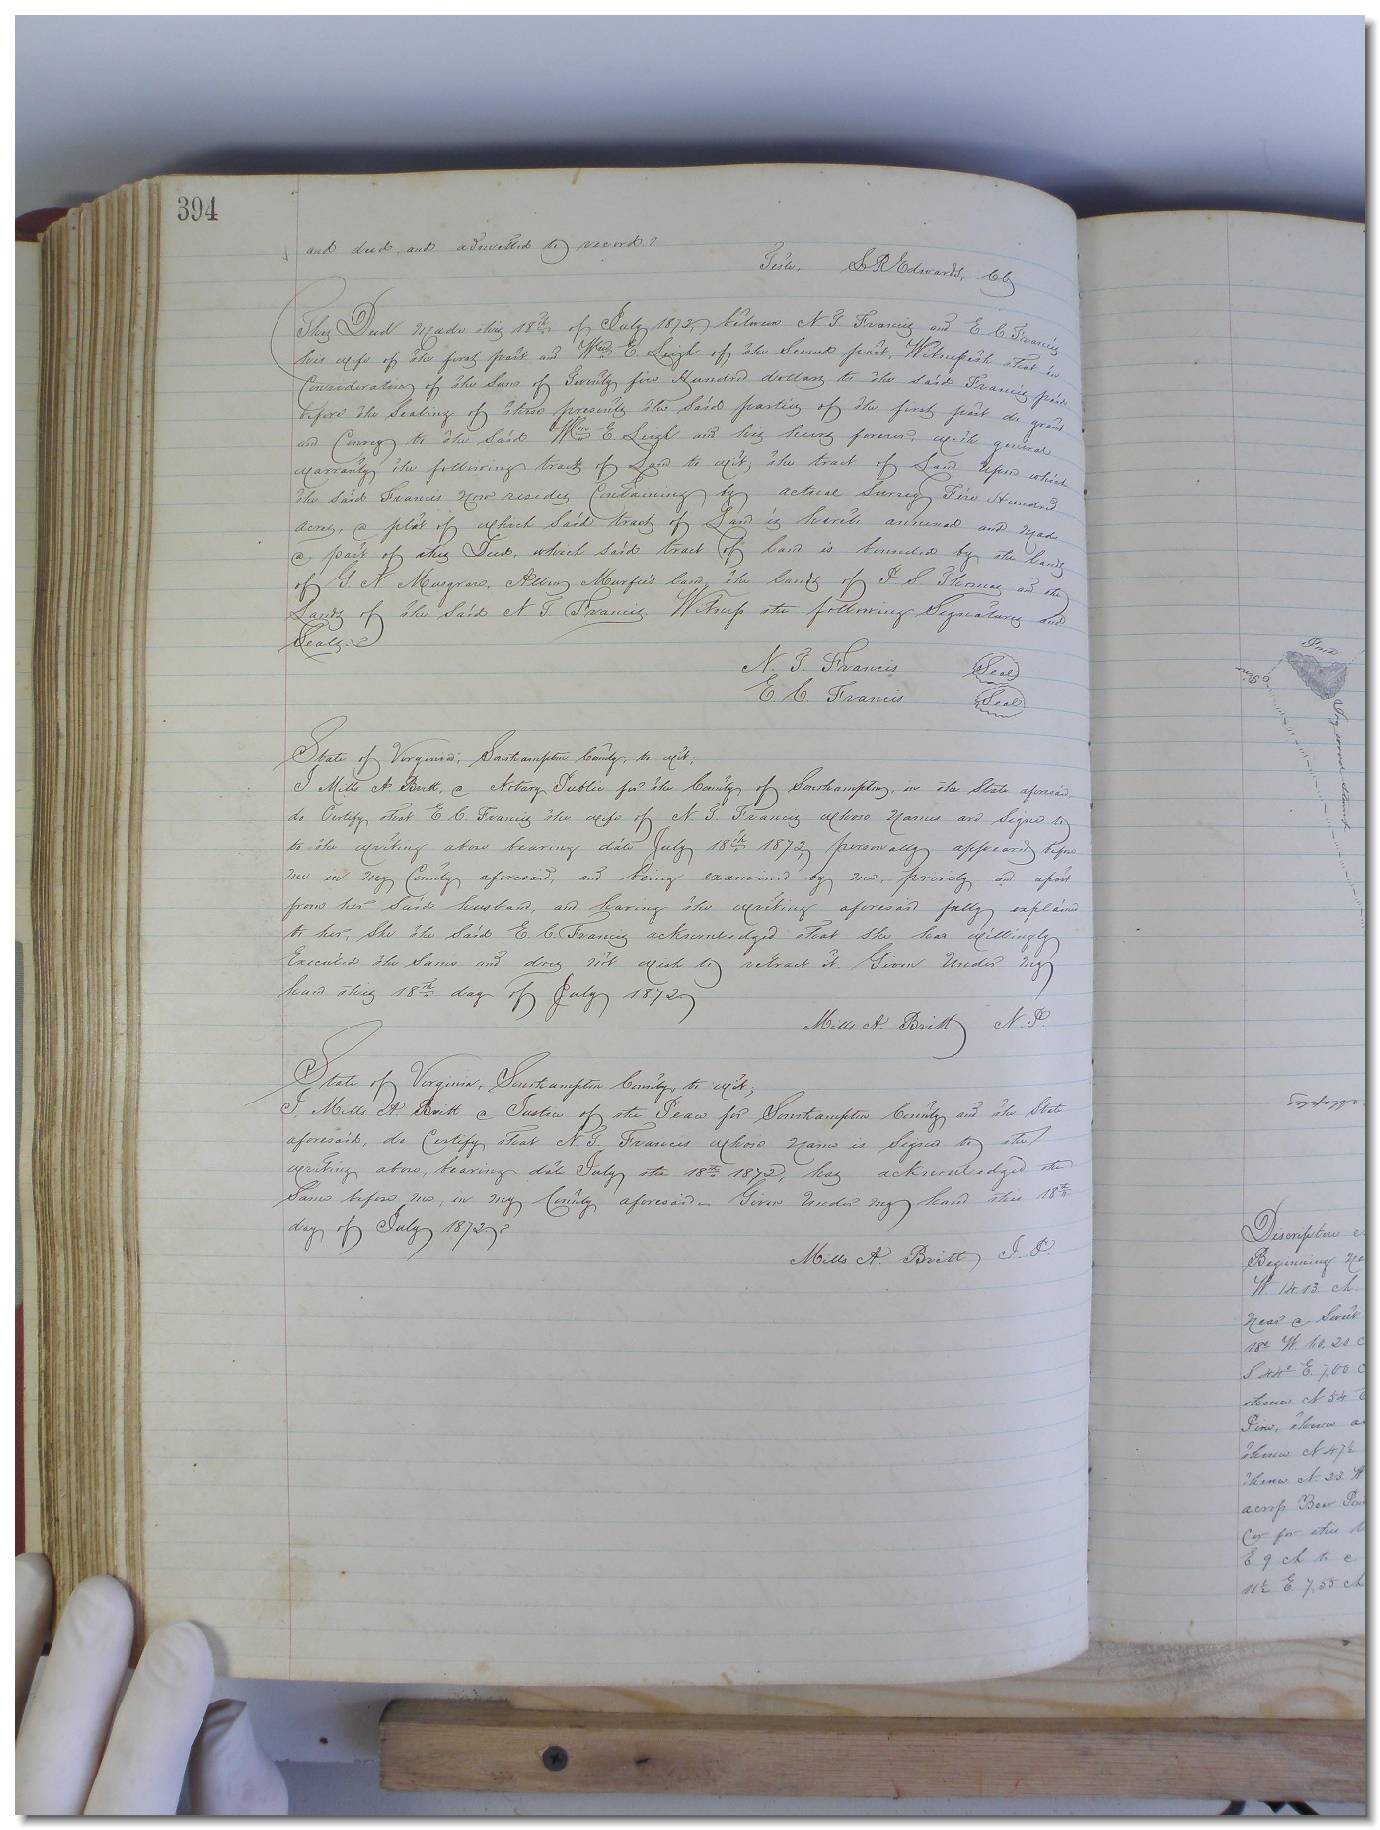 394
and deed, and admitted to record.
Teste. L R Edwards, Clk
This Deed Made this 18th of July 1872, between N. T. Francis and E C Francis
his wife of the first part and Wm E Leigh of the Second part, Witnesseth that in
Consideration of the Sum of Twenty five Hundred dollars to the said Francis paid
before the Sealing of these presents the Said parties of the first part do grant
and Convey to the Said Wm E Leigh and his heirs forever, with general
warranty the following tract of Land to wit, the tract of Land Upon which
the said Francis Now resides Containing by actual Survey Five Hundred
acres, a plat of which Said tract of Land is herewith annexed and Made
a part of this Deed, which said tract of land is bounded by the lands
of G N Musgrave, Allen Murfees land, the lands of J. S. Thomas and the
Lands of the Said N T Francis. Witness the following Signatures and
Seals
N. T. Francis Seal
E. C. Francis Seal
State of Virginia, Southampton County, to wit,
I Mills A Britt, a Notary Public for the County of Southampton, in the State aforesaid,
do Certify that E C. Francis the wife of N. T. Francis whose Names are Signed to
to the writing above bearing date July 18th 1872, personally appeared before
me in my County aforesaid, and being examined by me, privily and apart
from her Said husband, and having the writing aforesaid fully explained
to her, She the Said E C Francis acknowledged that She has willingly
Executed the Same and does not wish to retract it Given Under My
hand this 18th day of July 1872
Mills A. Britt N. P.
State of Virginia, Southampton County, to wit,
I Mills A Britt a Justice of the Peace for Southampton County and the State
aforesaid, do Certify that N. T. Francis whose Name is Signed to the
writing above, bearing date July the 18th 1872, has acknowledged the
Same before me, in my County aforesaid Given Under My hand this 18th
day of July 1872
Mills A. Britt, J. P.
Pine
Pine
Description
Beginning
W 14.13. ch
Near a Sweet
18° W. 10.20
S 44° E. 7.00
thence N 54
Pine, thence
thence N 47½
thence N. 23.
across
Cor for the
E 9 ch to a
E 7.55 ch